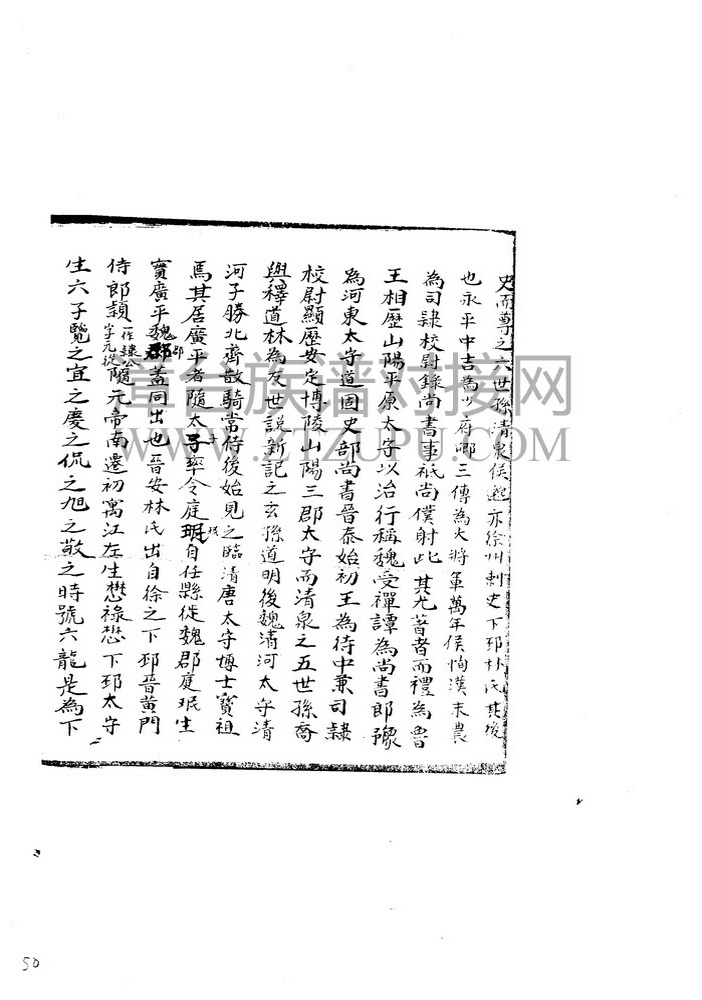 史而尊之六世孫清泉侯邈亦徐州刺史下邳林氏其後
也永平中吉為少府卿三傳為大將軍萬年侯恂漢末農
為司隸校尉錄尚書事祇尚僕射此其尤著者而禮為魯
王相歷山陽平原太守以治行稱魏受禪譚為尚書郎豫
為河東太守道固史部尚書晉泰始初王為待中兼司隸
校尉顯歷安定博陵山陽三郡太守而清泉之五世孫喬
與釋道林為友世説新記之玄孫道明後魏清河太守清
河子勝北齊散騎常侍後始見之臨清唐太守博士寶祖
焉其居廣平者隨太子率令庭珉自任縣徙魏郡庭珉生
寶廣平魏郡蓋同出也晉安林氏出自徐之下邳晉黃門
侍郎穎一作隸公字元從隨元帝南遷初寓江左生懋祿懋下邳太守
生六子覽之宜之慶之侃之旭之敬之時號六龍是為下
章台族谱对接网
WWW.ZTZUPU.COM
50